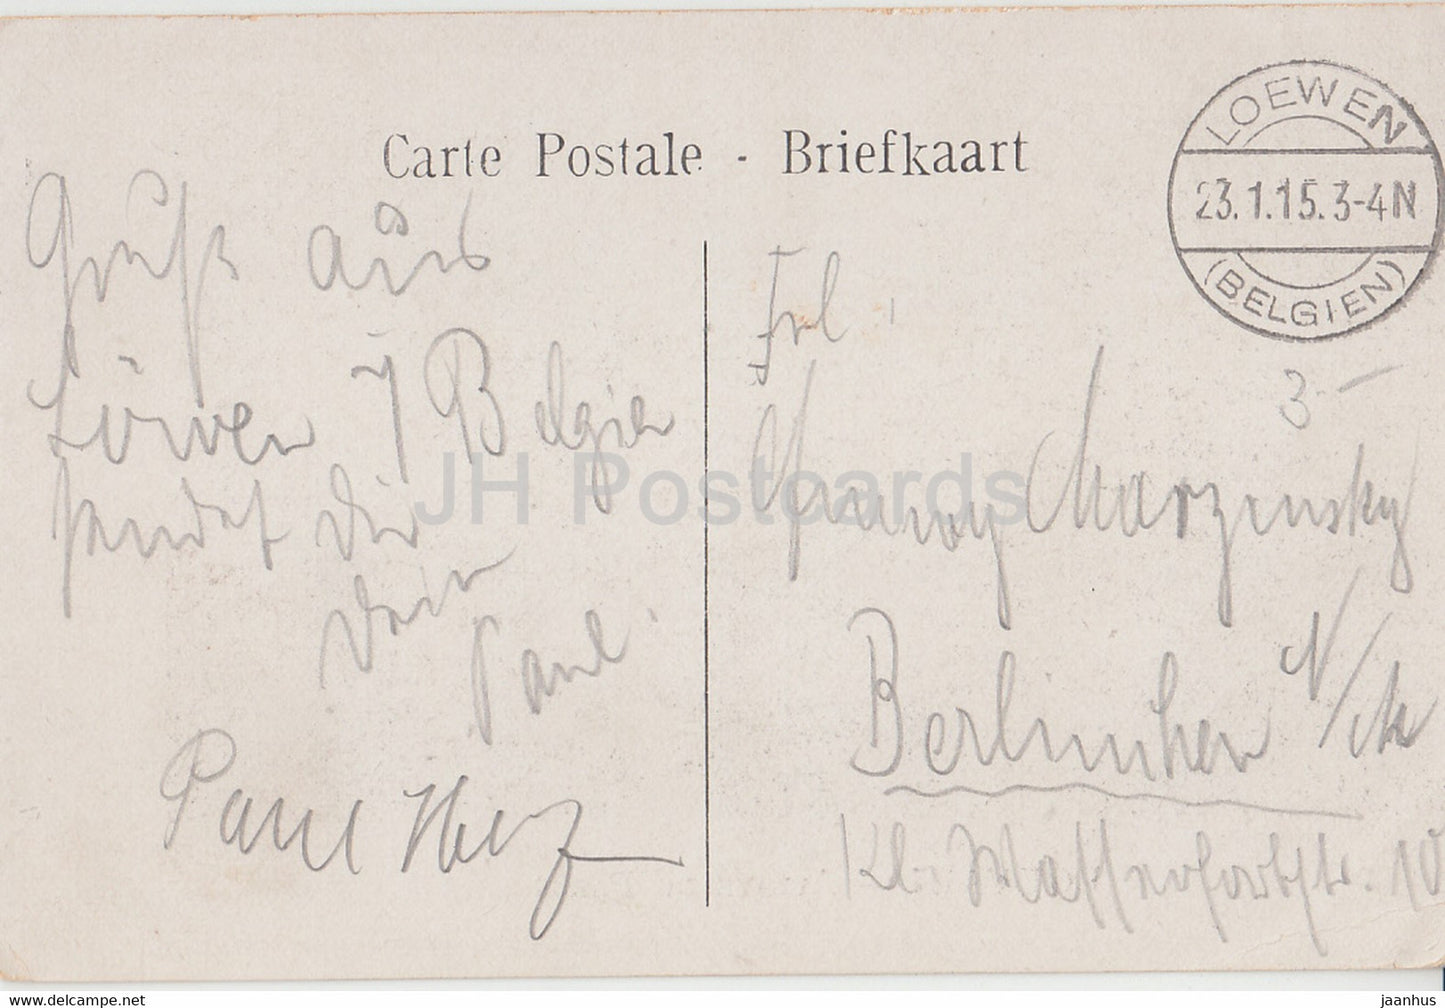 Carte Postale - Briefkaart
LOEWEN
23.1.15.3-4N
(BELGIEN)
Gruß aus
Löwen / Belgien
sendet Dir
Dein
Paul.
Paul Herz
Frl.
3-
Fanny Marzinsky
Berlinchen N/M
Kl. Wasserpfortstr. 10
JH Postcards
www.hippostcard.com
jaanhus